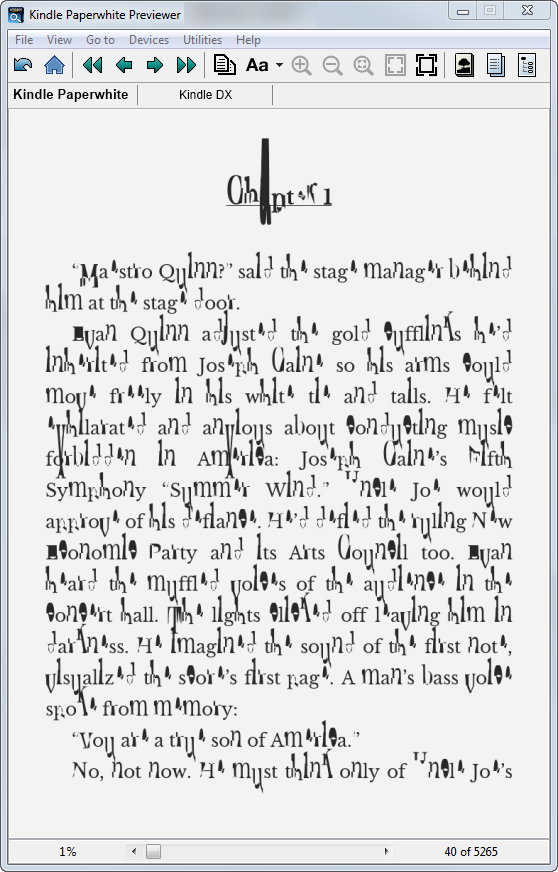 Kindle Paperwhite Previewer
File View Go to Devices Utilities Help
Aa
Kindle Paperwhite Kindle DX
Chapter 1
“Maestro Quinn?” said the stage manager behind
him at the stage door.
Evan Quinn adjusted the gold cufflinks he’d
inherited from Joseph Caine so his arms could
move freely in his white tie and tails. He felt
exhilarated and anxious about conducting music
forbidden in America: Joseph Caine’s Fifth
Symphony “Summer Wind.” Uncle Joe would
approve of his defiance. He’d defied the ruling New
Economic Party and Its Arts Council too. Evan
heard the muffled voices of the audience in the
concert hall. The lights clicked off leaving him in
darkness. He imagined the sound of the first note,
visualized the score’s first page. A man’s bass voice
spoke from memory:
“You are a true son of America.”
No, not now. He must think only of Uncle Joe’s
1% 40 of 5265